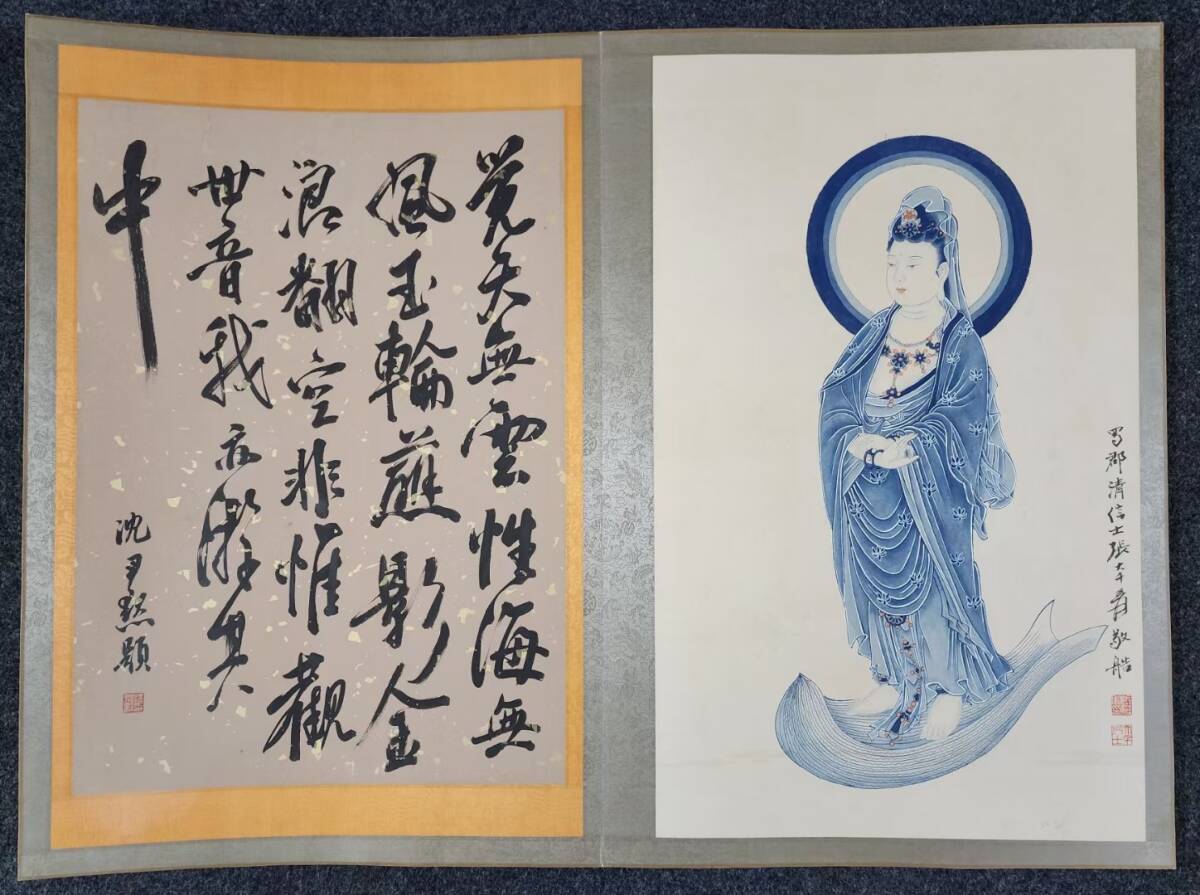 蜀郡清信士張大千爰敬艁
覺天無雲性海無
風玉輪蘸影金
浪翻空非惟觀
世音我亦游其
中
沈尹默題